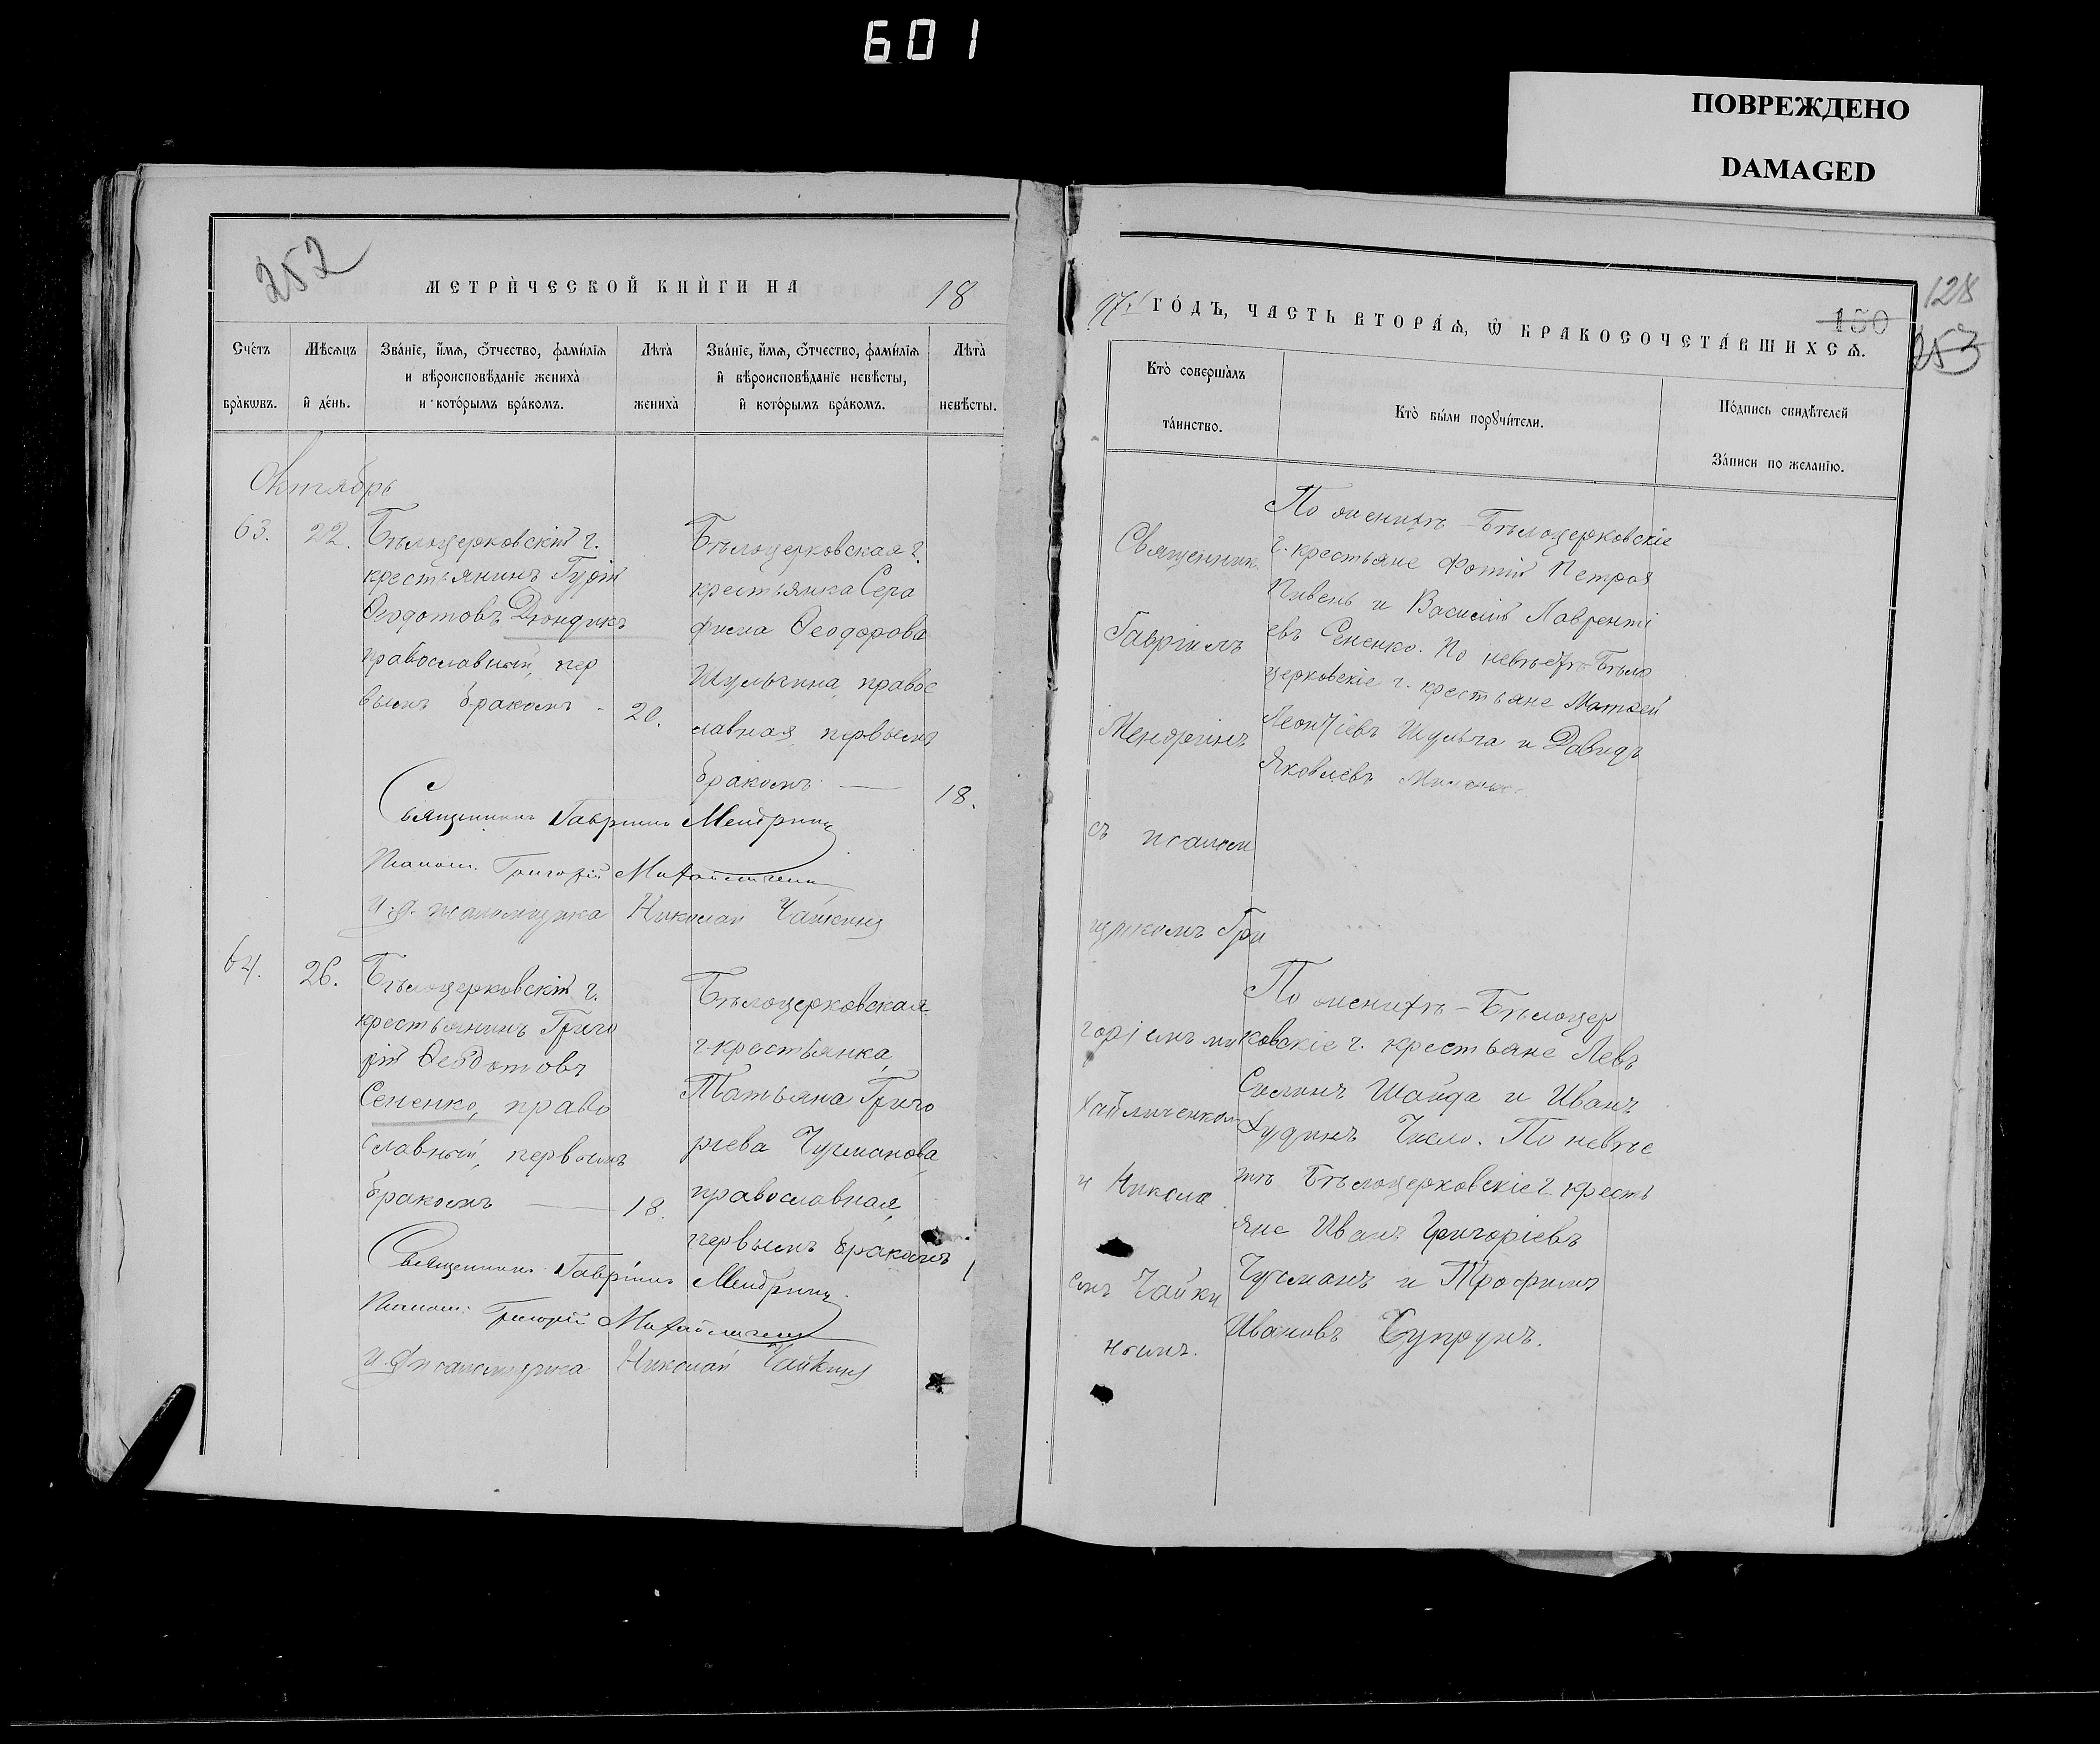 601
ПОВРЕЖДЕНО
DAMAGED
252
МЕТРИЧЕСКОЙ КНИГИ НА 18
Счетъ браковъ.
Мѣсяцъ и день.
Званіе, имя, отчество, фамилія и вѣроисповѣданіе жениха и которымъ бракомъ.
Лѣта жениха
Званіе, имя, отчество, фамилія и вѣроисповѣданіе невѣсты, и которымъ бракомъ.
Лѣта невѣсты.
Октябрь
63.
22.
Бѣлоцерковскій г.
крестьянинъ Гурій
Ѳеодотовъ Дюндикъ
православный, пер
вымъ бракомъ -
20.
Бѣлоцерковская г.
крестьянка Сера
фима Ѳеодорова
Шульгина, правос
лавная, первымъ
бракомъ —
18.
Священникъ Гавріилъ Мендринъ
Псалом. Григорій Михайличенко
и. д. псаломщика Николай Чайкинъ
64.
26.
Бѣлоцерковскій г.
крестьянинъ Григо
рій Ѳеодотовъ
Сененко, право
славный, первымъ
бракомъ —
18.
Бѣлоцерковская
г. крестьянка,
Татьяна Григо
рьева Чусманова,
православная,
первымъ бракомъ
1
Священникъ Гавріилъ Мендринъ
Псалом. Григорій Михайличенко
и. д. псаломщика Николай Чайкинъ
97 ГОДЪ, ЧАСТЬ ВТОРАЯ, Ѿ БРАКОСОЧЕТАВШИХСЯ.
128
150
253
Кто совершалъ таинство.
Кто были поручители.
Подпись свидѣтелей записи по желанію.
Священникъ
Гавріилъ
Мендринъ
съ псалом
щикомъ Гри
горіемъ Ми
хайличенком
и Никола
емъ Чайки
нымъ.
По жениху - Бѣлоцерковскіе
г. крестьяне Фотій Петровъ
Пивень и Василій Лавренті
евъ Сененко. По невѣстѣ - Бѣло
церковскіе г. крестьяне Матѳей
Леонтіевъ Шульга и Давидъ
Яковлевъ
По жениху - Бѣлоцер
ковскіе г. крестьяне Левъ
Шайда и Иванъ
Число. По невѣс
тѣ Бѣлоцерковскіе г. кресть
яне Иванъ Григоріевъ
Чусманъ и Трофимъ
Ивановъ Чупрунъ.